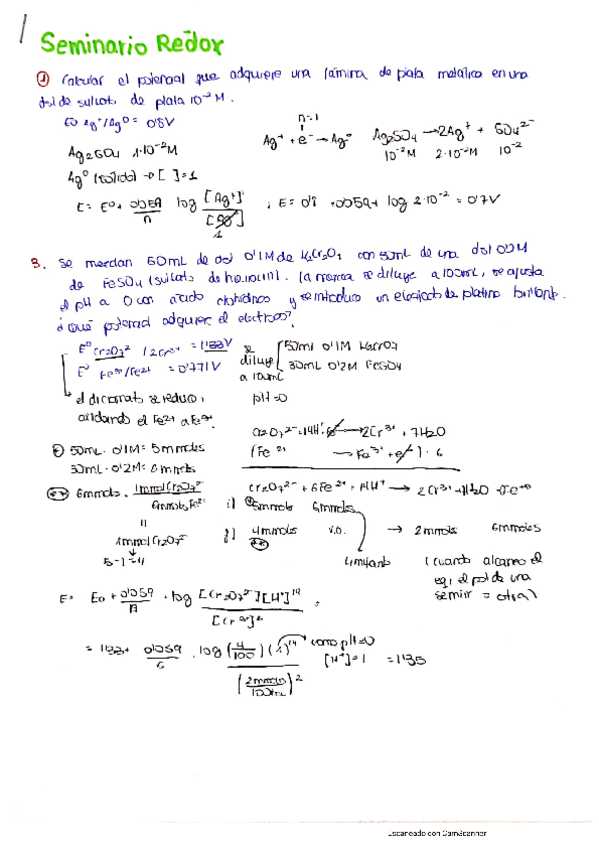 Seminario Redox
① Calcular el potencial que adquiere una lámina de plata metálica en una
dsl de sulfato de plata 10⁻² M.
E0 Ag⁺/Ag⁰ = 0'8V
n=1
Ag⁺ + e⁻ → Ag⁰   Ag₂SO₄ → 2Ag⁺ + SO₄²⁻
10⁻²M   2·10⁻²M   10⁻²
Ag₂SO₄ 1·10⁻²M
Ag⁰ (sólido) → [ ] = 1
E = E⁰ + 0'059/n log [Ag⁺]/[Ag⁰] ; E = 0'8 + 0'059 log 2·10⁻² = 0'7V
1
3. Se mezclan 50mL de dsl 0'1M de K₂Cr₂O₇ con 30mL de una dsl 0'2M
de FeSO₄ (sulfato de hierro(II)). La mezcla se diluye a 100mL, se ajusta
el pH a 0 con ácido clorhídrico y se introduce un electrodo de platino brillante.
¿Qué potencial adquiere el electrodo?
E⁰ Cr₂O₇²⁻/2Cr³⁺ = 1'33V
E⁰ Fe³⁺/Fe²⁺ = 0'771V
se diluye a 100mL
50ml 0'1M K₂Cr₂O₇
30mL 0'2M FeSO₄
el dicromato se reduce,
oxidando el Fe²⁺ a Fe³⁺
pH=0
Cr₂O₇²⁻ + 14H⁺ → 2Cr³⁺ + 7H₂O
(Fe²⁺ → Fe³⁺ + e⁻) · 6
50mL · 0'1M = 5mmoles
30mL · 0'2M = 6mmoles
6mmoles · 1mmol Cr₂O₇²⁻/6mmoles Fe²⁺
Cr₂O₇²⁻ + 6Fe²⁺ + 14H⁺ → 2Cr³⁺ + 7H₂O + 6Fe³⁺
i) 5mmoles 6mmoles
1mmol Cr₂O₇²⁻
5-1=4
f) 4mmoles → 2mmoles 6mmoles
limitante
(cuando alcanzo el
eq, el pot de una
semirr = otra)
E = E0 + 0'059/n · log [Cr₂O₇²⁻][H⁺]¹⁴/[Cr³⁺]² ;
= 1'33 + 0'059/6 · log (4/100)(1)¹⁴/(2mmoles/100mL)² = 1'35
como pH=0
[H⁺]=1
Escaneado con CamScanner